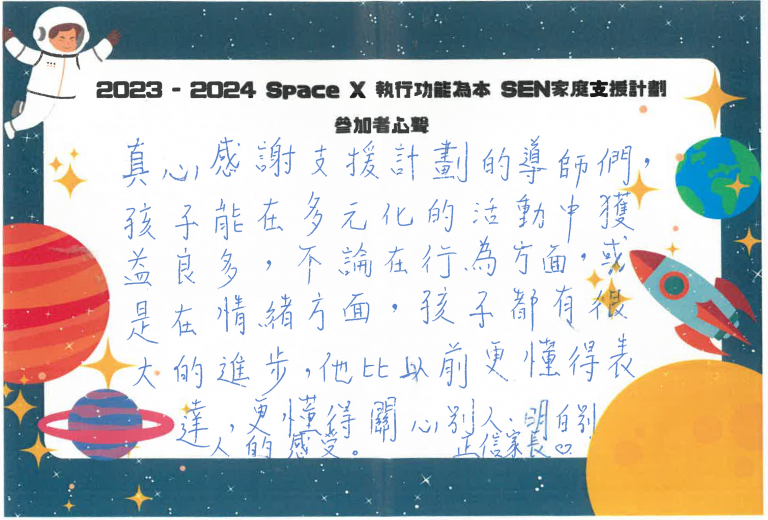 2023 - 2024 Space X 執行功能為本 SEN家庭支援計劃
參加者心聲
真心感謝支援計劃的導師們，
孩子能在多元化的活動中獲
益良多，不論在行為方面，或
是在情緒方面，孩子都有很
大的進步，他比以前更懂得表
達，更懂得關心別人、明白別
人的感受。 正信家長♡